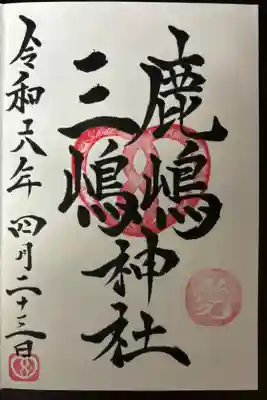 鹿嶋
三嶋
神社
令和八年四月二十三日